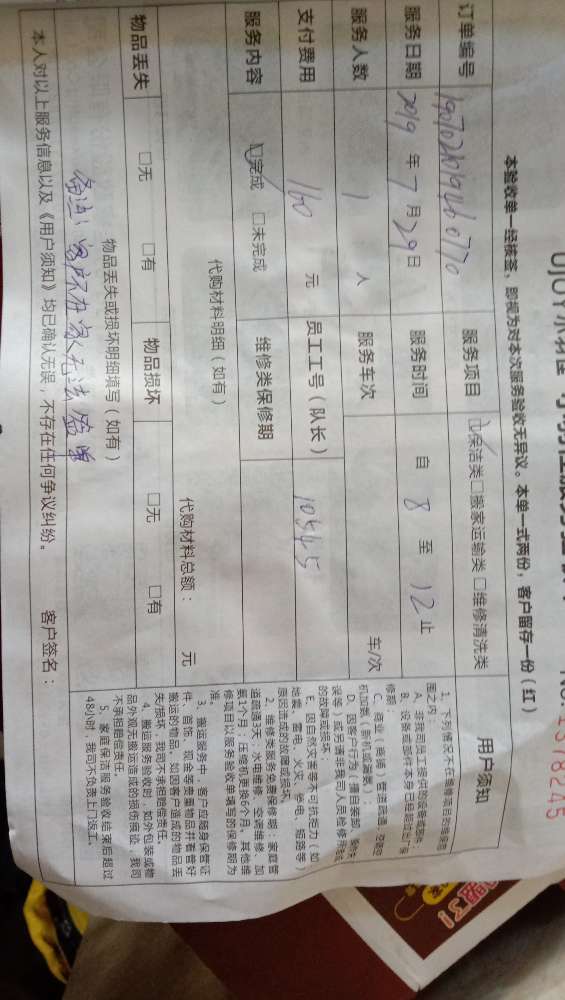 NO. 1378245
本验收单一经核签，即视为对本次服务验收无异议。本单一式两份，客户留存一份（红）
订单编号
服务项目 ☑保洁类 □搬家运输类 □维修清洗类
服务日期 2019 年 7 月 29 日 服务时间 自 8 至 12 止
服务人数 1 人 服务车次 车/次
支付费用 160 元 员工工号（队长） 105445
服务内容 ☑完成 □未完成 维修类保修期
代购材料明细（如有） 代购材料总额： 元
物品丢失 □无 □有 物品损坏 □无 □有
物品丢失或损坏明细填写（如有）
备注：
本人对以上服务信息以及《用户须知》均已确认无误，不存在任何争议纠纷。 客户签名：
用户须知
1、下列情况不在维修项目的维保范
围之内：
A、非我司员工提供的设备或部件；
D、因客户行为（擅自装卸、
误等）或非普通非我司人员检修所造成
的故障或损坏；
E、因自然灾害等不可抗拒力（如
地震、雷电、火灾、受电、短路等）
原因造成的故障或损坏。
2、维修类服务免费保修期：家庭管
道疏通3天；水电维修、空调维修、加
氨1个月；压缩机更换6个月。其他维
修项目以服务验收单填写的保修期为
准。
3、搬运服务中，客户应随身保管证
件、首饰、现金等贵重物品并看管好
搬运的物品，如因客户造成的物品丢
失/损坏，我司不承担赔偿责任。
4、搬运服务验收时，如外包装或物
品外观无搬运造成的损伤痕迹，我司
不承担赔偿责任。
5、家庭保洁服务验收结束后超过
48小时，我司不负责上门返工。